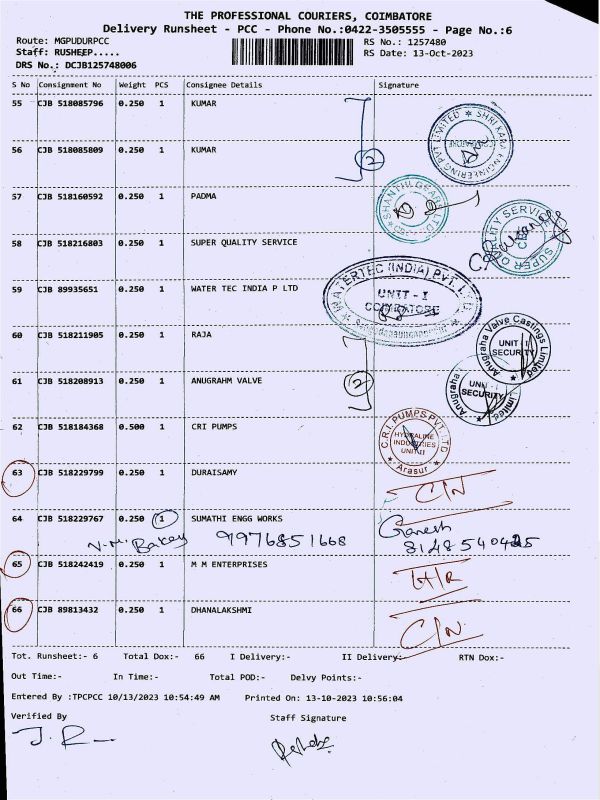 THE PROFESSIONAL COURIERS, COIMBATORE
Delivery Runsheet - PCC - Phone No.:0422-3505555 - Page No.:6
Route: MGPUDURPCC RS No.: 1257480
Staff: RUSHEEP..... RS Date: 13-Oct-2023
DRS No.: DCJB125748006
S No Consignment No Weight PCS Consignee Details Signature
55 CJB 518085796 0.250 1 KUMAR
SHRI KARA ENGINEERING PVT LIMITED
COIMBATORE
56 CJB 518085809 0.250 1 KUMAR
2
57 CJB 518160592 0.250 1 PADMA
SHANTHI GEARS LTD.
58 CJB 518216803 0.250 1 SUPER QUALITY SERVICE
SUPER QUALITY SERVICE
59 CJB 89935651 0.250 1 WATER TEC INDIA P LTD
WATERTEC (INDIA) PVT. LTD
UNIT - I
COIMBATORE
60 CJB 518211905 0.250 1 RAJA
Anugraha Valve Castings Limited
UNIT - I
SECURITY
61 CJB 518208913 0.250 1 ANUGRAHM VALVE
2
Anugraha Limited
UNI
SECURITY
62 CJB 518184368 0.500 1 CRI PUMPS
C.R.I. PUMPS PVT LTD
HYDRALINE
INDUSTRIES
UNIT II
Arasur
63 CJB 518229799 0.250 1 DURAISAMY
C/N
64 CJB 518229767 0.250 1 SUMATHI ENGG WORKS
Ganesh
9976851668
65 CJB 518242419 0.250 1 M M ENTERPRISES
66 CJB 89813432 0.250 1 DHANALAKSHMI
C/N
Tot. Runsheet:- 6 Total Dox:- 66 I Delivery:- II Delivery:- RTN Dox:-
Out Time:- In Time:- Total POD:- Delvy Points:-
Entered By :TPCPCC 10/13/2023 10:54:49 AM Printed On: 13-10-2023 10:56:04
Verified By Staff Signature
J.R